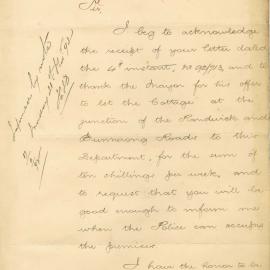 Sir,
I beg to acknowledge
the receipt of your letter dated
the 4th instant, No 92/93, and to
thank the Mayor for his offer
to let the Cottage at the
junction of the Randwick and
Bunnerong Roads to this
Department, for the sum of
ten shillings per week, and
to request that you will be
good enough to inform me
when the Police can occupy
the premises.
I have the honor to be